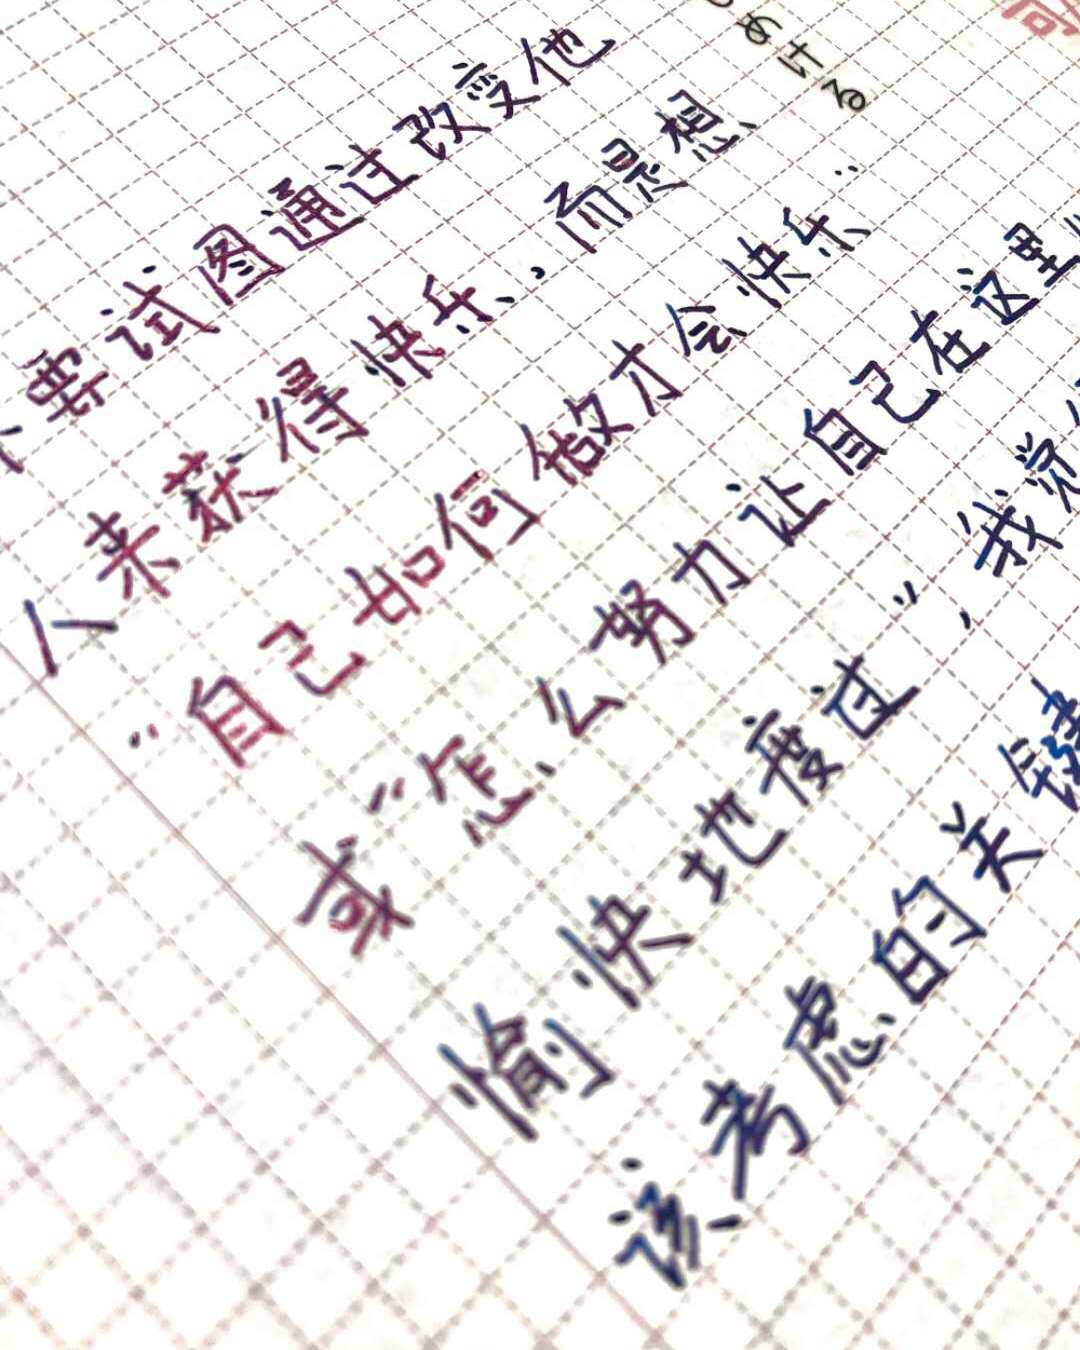 める
要试图通过改变他
人来获得快乐，而是想
“自己如何做才会快乐”
或“怎么努力让自己在这里
愉快地度过”，我觉
该考虑的关键